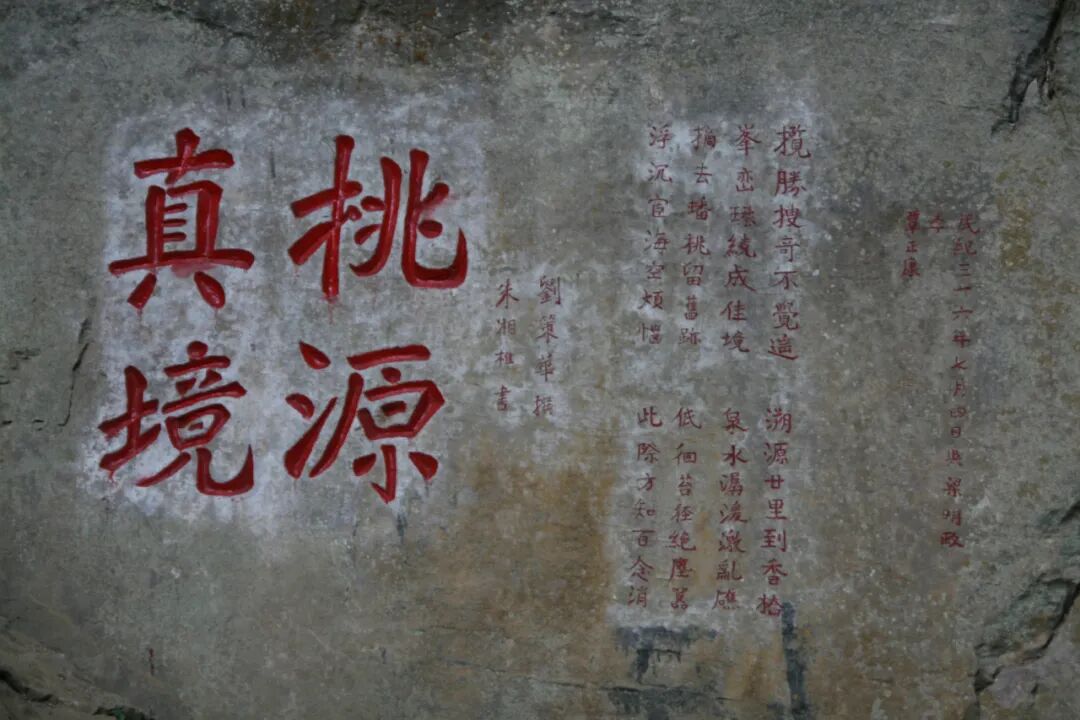 民紀三一六年七月四日與梁明政
李
覃正康
攬勝搜哥不覺
溯源廿里到香
峯巒環繞成佳境
泉水潺湲激亂礁
摘去蟠桃留舊跡
低徊苔徑絕塵囂
浮沉宦海空煩惱
此際方知百念消
劉策華撰
朱湘樵書
桃源
真境